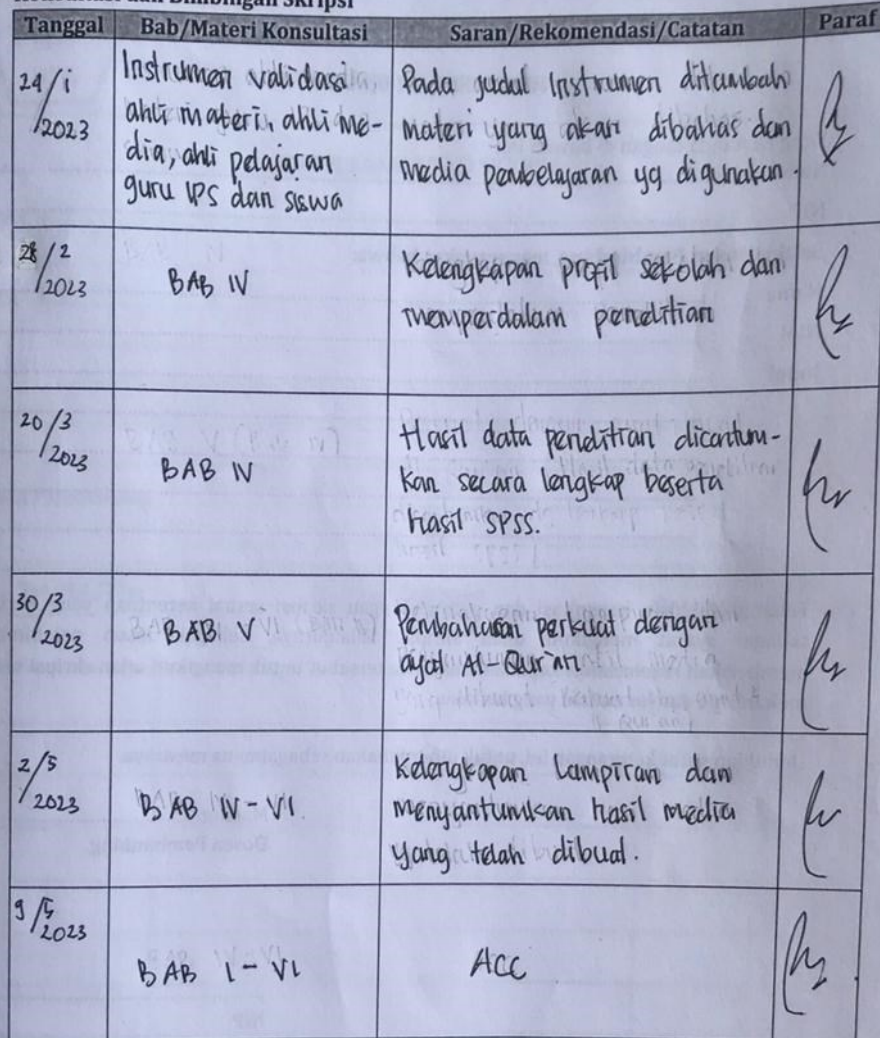 Tanggal Bab/Materi Konsultasi Saran/Rekomendasi/Catatan Paraf
24/1/2023
Instrumen validasi
ahli materi, ahli me-
dia, ahli pelajaran
guru IPS dan siswa
Pada judul Instrumen ditambah
materi yang akan dibahas dan
media pembelajaran yg digunakan.
28/2/2023
BAB IV
Kelengkapan profil sekolah dan
memperdalam penelitian
20/3/2023
BAB IV
Hasil data penelitian dicantum-
kan secara lengkap beserta
hasil SPSS.
30/3/2023
BAB V
Pembahasan perkuat dengan
ayat Al-Qur'an
2/5/2023
BAB IV - VI
Kelengkapan Lampiran dan
menyantumkan hasil media
yang telah dibuat.
9/5/2023
BAB I - VI
ACC